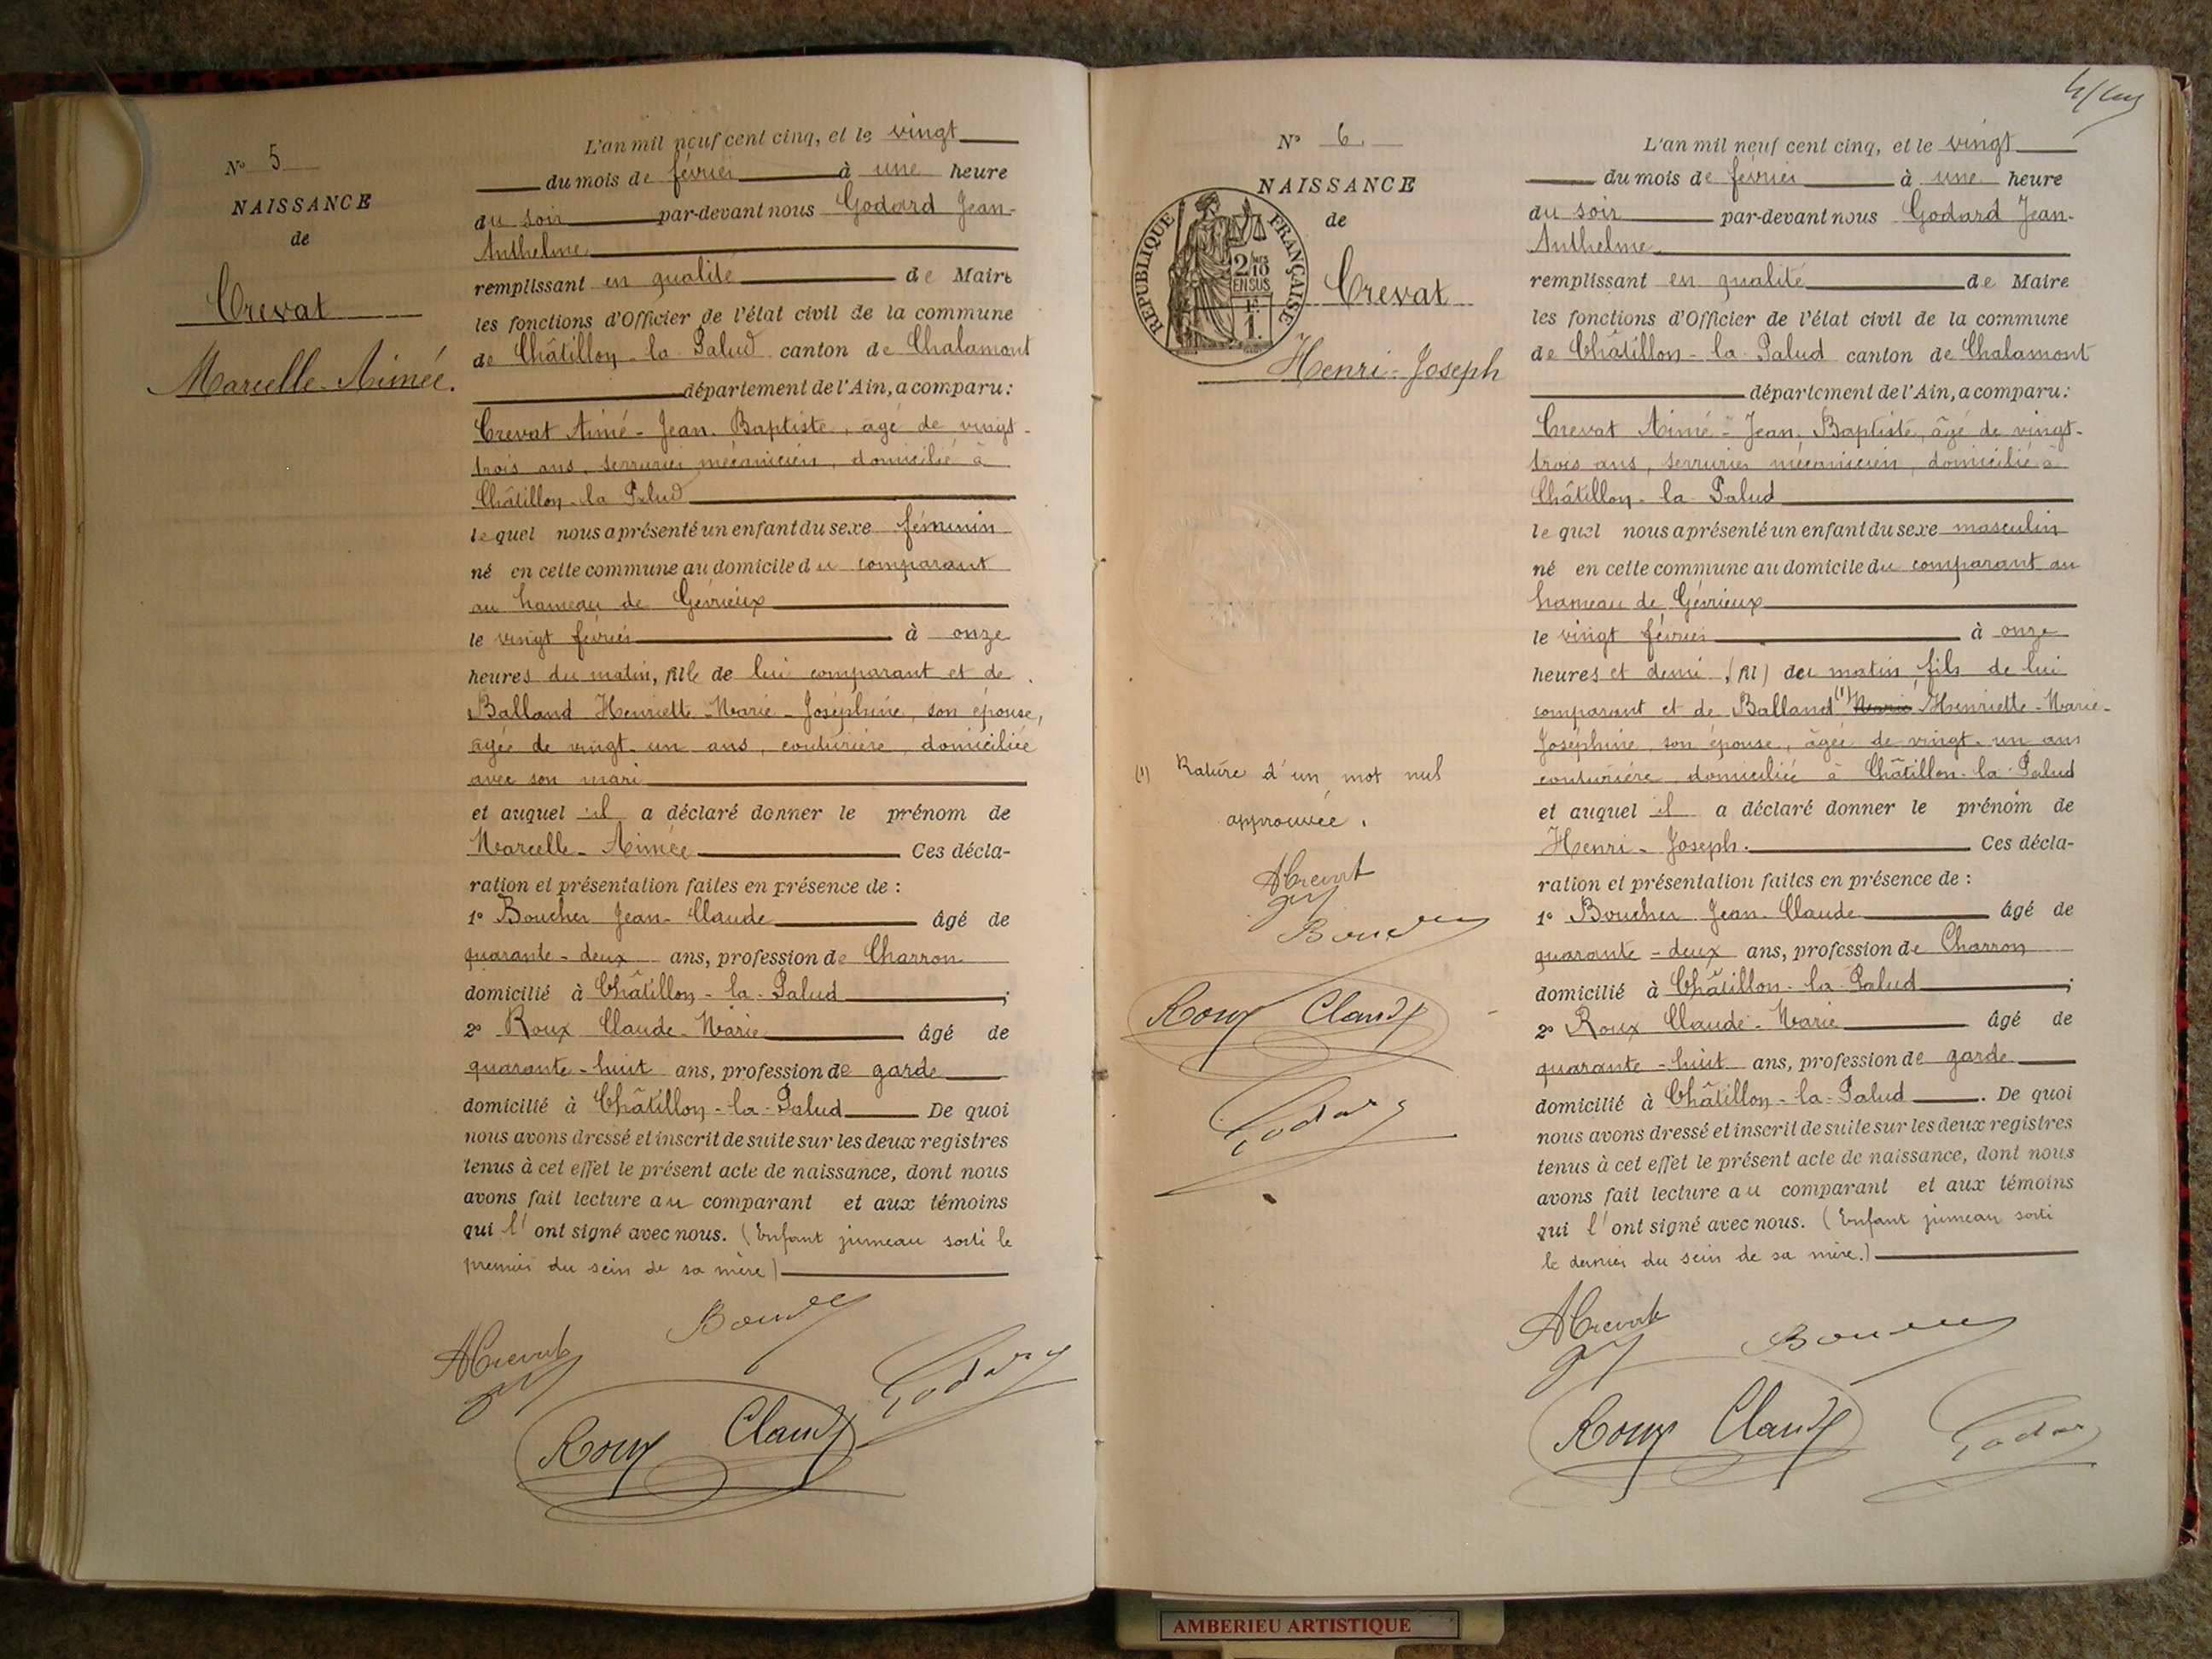 N° 5
NAISSANCE
de
Crevat
Marcelle-Aimée.
L'an mil neuf cent cinq, et le vingt
du mois de février à une heure
du soir par-devant nous Godard Jean-
Anthelme
remplissant en qualité de Maire
les fonctions d'Officier de l'état civil de la commune
de Châtillon-la-Palud canton de Chalamont
département de l'Ain, a comparu:
Crevat Aimé-Jean-Baptiste, âgé de vingt-
trois ans, serrurier mécanicien, domicilié à
Châtillon-la Palud
lequel nous a présenté un enfant du sexe féminin
né en cette commune au domicile du comparant
au hameau de Gévrieux
le vingt février à onze
heures du matin, fille de lui comparant et de
Balland Henriette-Marie-Joséphine, son épouse,
âgée de vingt-un ans, couturière, domiciliée
avec son mari
et auquel il a déclaré donner le prénom de
Marcelle-Aimée Ces décla-
ration et présentation faites en présence de :
1° Boucher Jean-Claude âgé de
quarante-deux ans, profession de Charron
domicilié à Châtillon-la-Palud ;
2° Roux Claude-Marie âgé de
quarante-huit ans, profession de garde
domicilié à Châtillon-la-Palud De quoi
nous avons dressé et inscrit de suite sur les deux registres
tenus à cet effet le présent acte de naissance, dont nous
avons fait lecture au comparant et aux témoins
qui l'ont signé avec nous. (Enfant jumeau sorti le
premier du sein de sa mère)
ACrevat Boucher
Roux Claude Godard
N° 6.
NAISSANCE
de
RÉPUBLIQUE FRANÇAISE
2/10 EN SUS
1.
Crevat
Henri-Joseph
(1) Rature d'un mot nul
approuvée.
ACrevat
Boucher
Roux Claude
Godard
L'an mil neuf cent cinq, et le vingt
du mois de février à une heure
du soir par-devant nous Godard Jean-
Anthelme
remplissant en qualité de Maire
les fonctions d'Officier de l'état civil de la commune
de Châtillon-la-Palud canton de Chalamont
département de l'Ain, a comparu:
Crevat Aimé-Jean-Baptiste, âgé de vingt-
trois ans, serrurier mécanicien, domicilié à
Châtillon-la-Palud
lequel nous a présenté un enfant du sexe masculin
né en cette commune au domicile du comparant au
hameau de Gévrieux
le vingt février à onze
heures et demi, (fil) du matin fils de lui
comparant et de Balland (1) Marie Henriette-Marie-
Joséphine, son épouse, âgée de vingt-un ans
couturière, domiciliée à Châtillon-la-Palud
et auquel il a déclaré donner le prénom de
Henri-Joseph. Ces décla-
ration et présentation faites en présence de :
1° Boucher Jean-Claude âgé de
quarante-deux ans, profession de Charron
domicilié à Châtillon-la-Palud ;
2° Roux Claude-Marie âgé de
quarante-huit ans, profession de garde
domicilié à Châtillon-la-Palud . De quoi
nous avons dressé et inscrit de suite sur les deux registres
tenus à cet effet le présent acte de naissance, dont nous
avons fait lecture au comparant et aux témoins
qui l'ont signé avec nous. (Enfant jumeau sorti
le dernier du sein de sa mère.)
ACrevat Boucher
Roux Claude Godard
AMBERIEU ARTISTIQUE